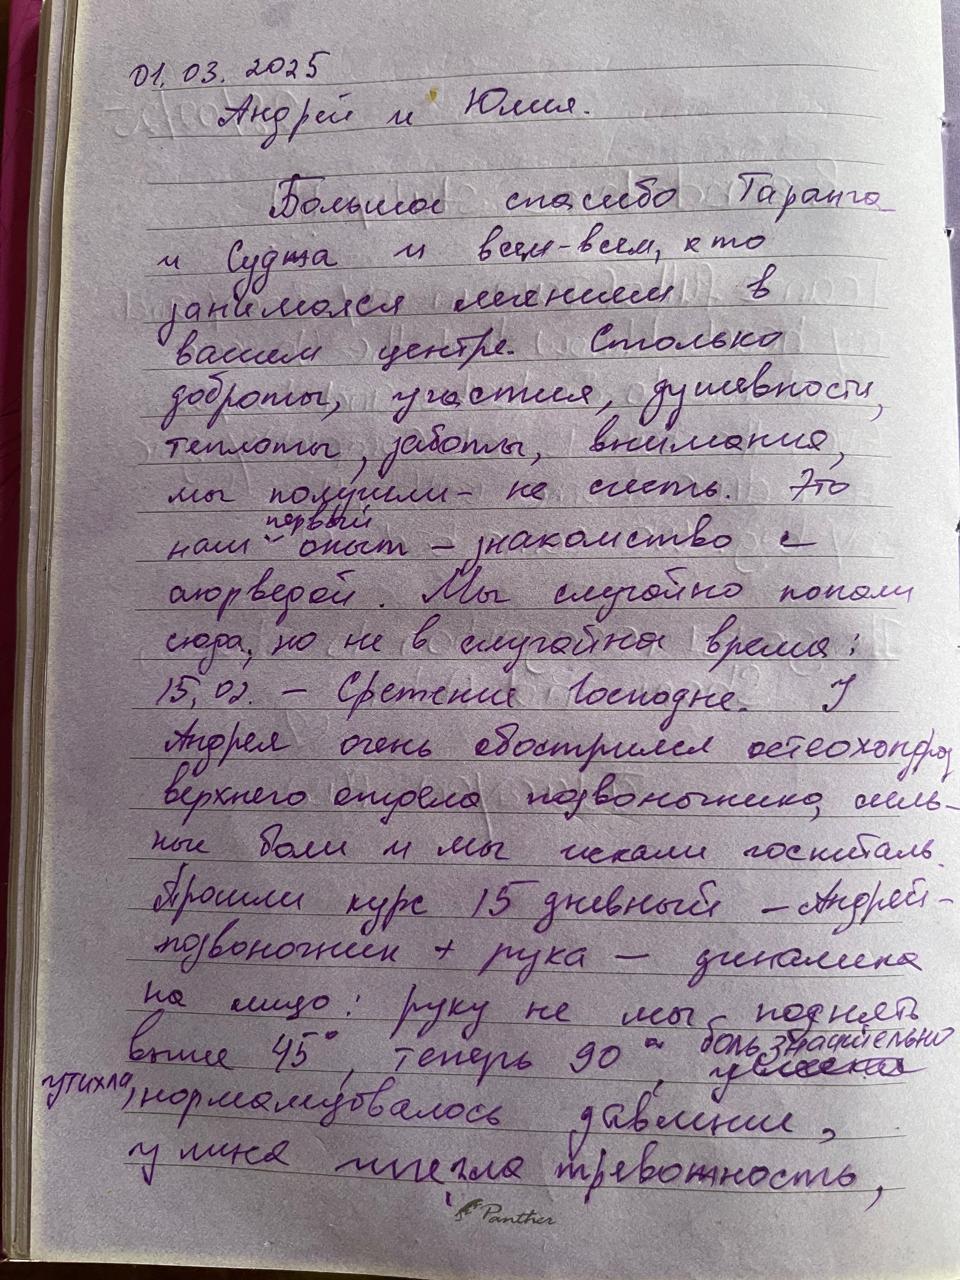 01.03.2025
Андрей и Юлия.
Большое спасибо Таранга
и Суджа и всем-всем, кто
занимался лечением в
вашем центре. Столько
доброты, участия, душевности,
теплоты, заботы, внимания,
мы получили - не счесть. Это
первый
наш опыт - знакомство с
аюрведой. Мы случайно попали
сюда, но не в случайное время:
15.02. - Сретение Господне. У
Андрея очень обострился остеохондроз
верхнего отдела позвоночника, силь-
ные боли и мы искали госпиталь.
Прошли курс 15 дневный - Андрей -
позвоночник + рука - динамика
на лицо: руку не мы поднять
выше 45°, теперь 90°, боль значительно
утихла, нормализовалось давление,
у меня исчезла тревожность,
Panther